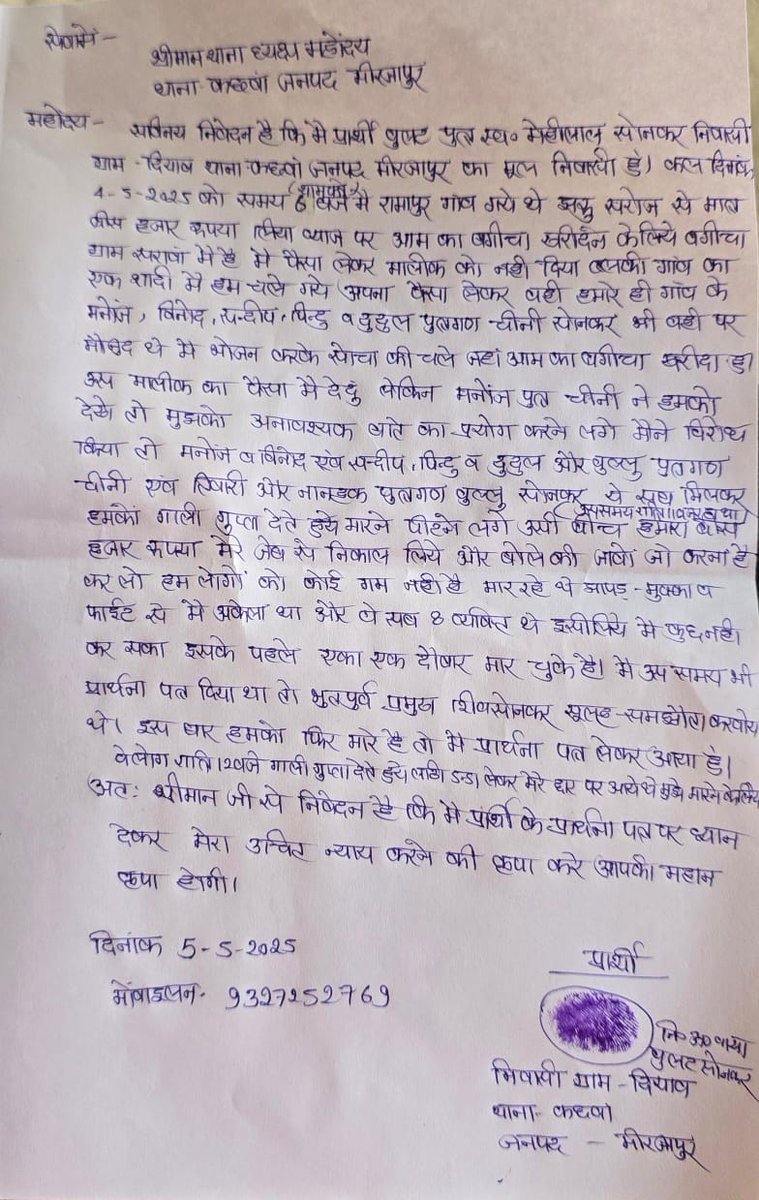 सेवामें -
श्रीमान थाना ध्यक्ष महोदय
थाना कछवां जनपद मीरजापुर
महोदय - सविनय निवेदन है कि मै प्रार्थी पुत्र स्व० सोनकर निवासी
ग्राम - दियाव थाना कछवां जनपद मीरजापुर का मूल निवासी हुं। कल दिनांक
4-5-2025 को समय 6 बजे (शामको) मै रामापुर गांव गये थे सरोज से मात्र
बीस हजार रूपया लिया व्याज पर आम का बगीचा खरीदने के लिये बगीचा
ग्राम सरावां मे है मै पैसा लेकर मालीक को नही दिया उसकी गांव का
एक शादी मै हम चले गये (अपना पैसा लेकर वही हमारे ही गांव के
मनोज, विनोद, सन्दीप, पिन्टु व दुदुल पुत्रगण चीनी सोनकर भी वही पर
मौजुद थे मै भोजन करके सोचा की चले जहां आम का बगीचा खरीदा हु।
उस मालीक का पैसा मै दे दुं लेकिन मनोज पुत्र चीनी ने हमको
देखे तो मुझको अनावश्यक बाते का प्रयोग करने लगे मैने विरोध
किया तो मनोज व विनोद एंव सन्दीप, पिन्टु व दुदुल और पुत्रगण
चीनी एंव तिवारी और पुत्रगण सोनकर ये सब मिलकर
हमको गाली गुप्ता देते हुये मारने पीटने लगे उसी बीच हमारा बीस
हजार रूपया मेरे जेब से निकाल लिये और बोले की जावो जो करना है
कर लो हम लोगो को कोई गम नही है मार रहे थे झापड़ - मुक्का व
फाईट से मै अकेला था और वे सब 8 व्यक्ति थे इसीलिये मै कुछ नही
कर सका इसके पहले एका एक दोबार मार चुके है। मै उस समय भी
प्रार्थना पत्र दिया था तो भुतपुर्व प्रमुख शिव सोनकर सुलह - समझौता करवाये
थे। इस बार हमको फिर मारे है तो मै प्रार्थना पत्र लेकर आया हुं।
वे लोग रात्रि 12 बजे गाली गुप्ता देते हुये लाठी डन्डा लेकर मेरे द्वार पर आये थे मुझे मारने के लिये
अतः श्रीमान जी से निवेदन है कि मै प्रार्थी के प्रार्थना पत्र पर ध्यान
देकर मेरा उचित न्याय करने की कृपा करे आपकी महान
कृपा होगी।
दिनांक 5-5-2025
मोबाइलन. 9327252769
प्रार्थी
नि० अ० बाया
सोनकर
निवासी ग्राम - दियाव
थाना - कछवां
जनपद - मीरजापुर